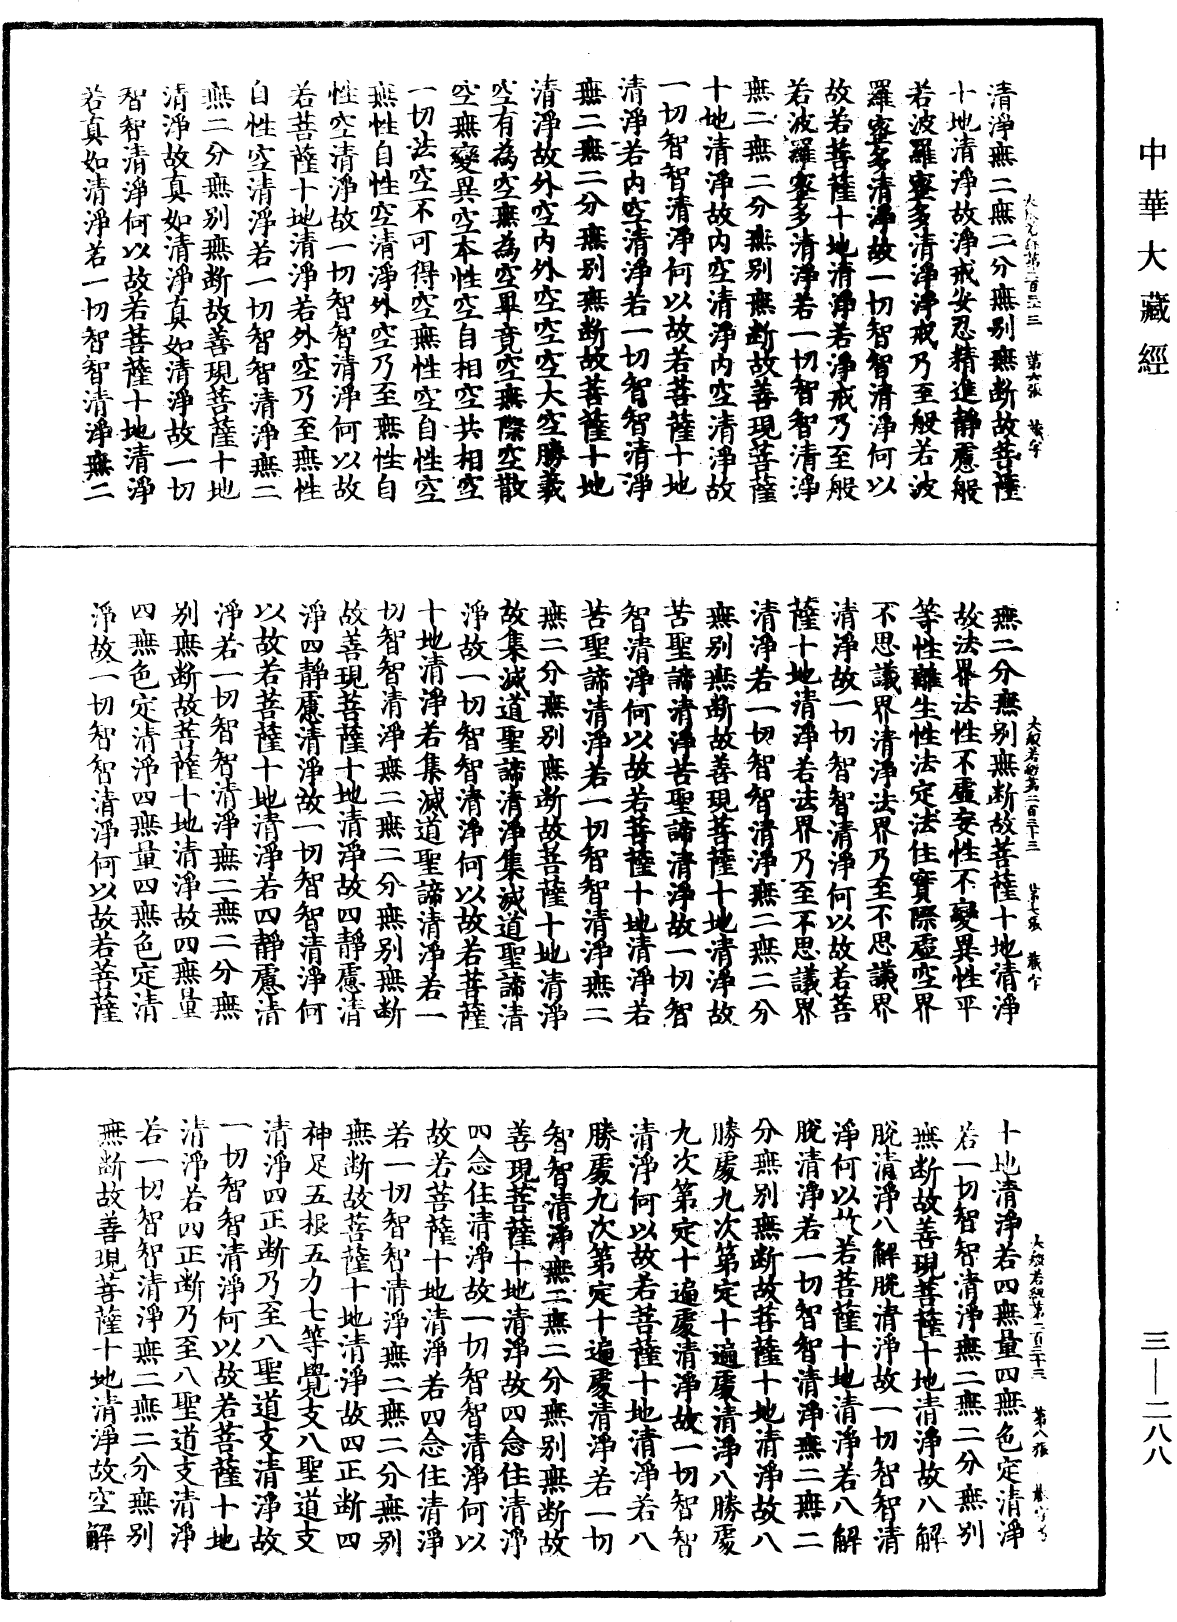 中華大藏經
清淨無二無二分無別無斷故菩薩
十地清淨故淨戒安忍精進靜慮般
若波羅蜜多清淨淨戒乃至般若波
羅蜜多清淨故一切智智清淨何以
故若菩薩十地清淨若淨戒乃至般
若波羅蜜多清淨若一切智智清淨
無二無二分無別無斷故善現菩薩
十地清淨故內空清淨內空清淨故
一切智智清淨何以故若菩薩十地
清淨若內空清淨若一切智智清淨
無二無二分無別無斷故菩薩十地
清淨故外空內外空空空大空勝義
空有為空無為空畢竟空無際空散
空無變異空本性空自相空共相空
一切法空不可得空無性空自性空
無性自性空清淨外空乃至無性自
性空清淨故一切智智清淨何以故
若菩薩十地清淨若外空乃至無性
自性空清淨若一切智智清淨無二
無二分無別無斷故善現菩薩十地
清淨故真如清淨真如清淨故一切
智智清淨何以故若菩薩十地清淨
若真如清淨若一切智智清淨無二
大般若經第二百三十三 第七張 藏字
無二分無別無斷故菩薩十地清淨
故法界法性不虛妄性不變異性平
等性離生性法定法住實際虛空界
不思議界清淨法界乃至不思議界
清淨故一切智智清淨何以故若菩
薩十地清淨若法界乃至不思議界
清淨若一切智智清淨無二無二分
無別無斷故善現菩薩十地清淨故
苦聖諦清淨苦聖諦清淨故一切智
智清淨何以故若菩薩十地清淨若
苦聖諦清淨若一切智智清淨無二
無二分無別無斷故菩薩十地清淨
故集滅道聖諦清淨集滅道聖諦清
淨故一切智智清淨何以故若菩薩
十地清淨若集滅道聖諦清淨若一
切智智清淨無二無二分無別無斷
故善現菩薩十地清淨故四靜慮清
淨四靜慮清淨故一切智智清淨何
以故若菩薩十地清淨若四靜慮清
淨若一切智智清淨無二無二分無
別無斷故菩薩十地清淨故四無量
四無色定清淨四無量四無色定清
淨故一切智智清淨何以故若菩薩
大般若經第二百三十三 第八張
十地清淨若四無量四無色定清淨
若一切智智清淨無二無二分無別
無斷故善現菩薩十地清淨故八解
脫清淨八解脫清淨故一切智智清
淨何以故若菩薩十地清淨若八解
脫清淨若一切智智清淨無二無二
分無別無斷故菩薩十地清淨故八
勝處九次第定十遍處清淨八勝處
九次第定十遍處清淨故一切智智
清淨何以故若菩薩十地清淨若八
勝處九次第定十遍處清淨若一切
智智清淨無二無二分無別無斷故
善現菩薩十地清淨故四念住清淨
四念住清淨故一切智智清淨何以
故若菩薩十地清淨若四念住清淨
若一切智智清淨無二無二分無別
無斷故菩薩十地清淨故四正斷四
神足五根五力七等覺支八聖道支
清淨四正斷乃至八聖道支清淨故
一切智智清淨何以故若菩薩十地
清淨若四正斷乃至八聖道支清淨
若一切智智清淨無二無二分無別
無斷故善現菩薩十地清淨故空解
三—二八八